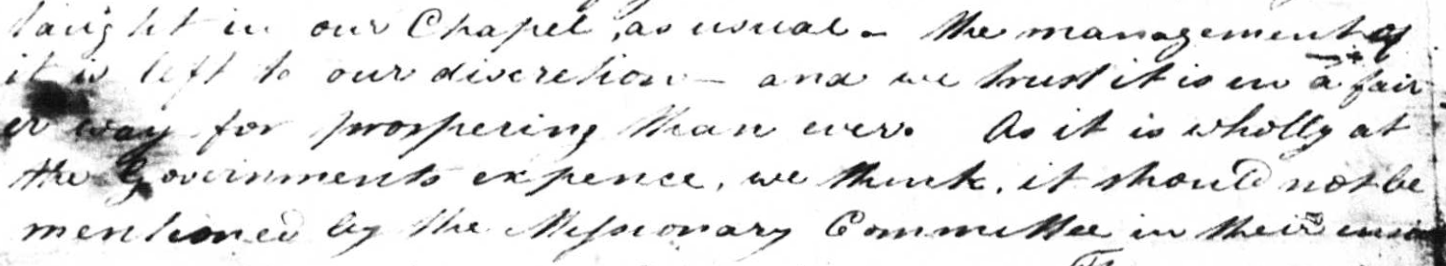 taught in our Chapel, as usual - the management of
it is left to our discretion - and we trust it is in a fair
er way for prospering than ever. As it is wholly at
the Governments expence, we think, it should not be
mentioned by the Missionary Committee in their